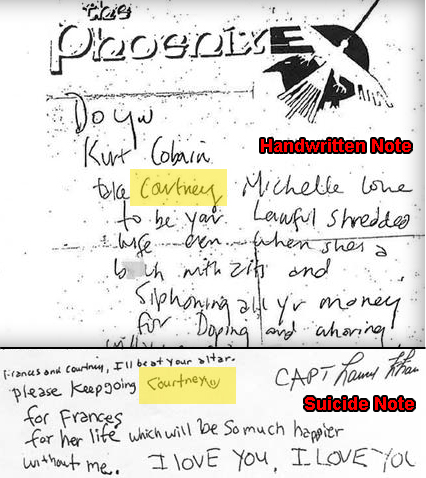 the
Phoenix
Do you
Kurt Cobain
Handwritten Note
take Courtney Michelle Love
to be your Lawful shredded
wife even when shes a
b ch with zits and
siphoning all yr money
for Doping and whoring
Frances and Courtney, I'll be at your altar.
please keep going Courtney
CAPT
Suicide Note
for Frances
for her life which will be so much happier
without me. I LOVE YOU, I LOVE YOU